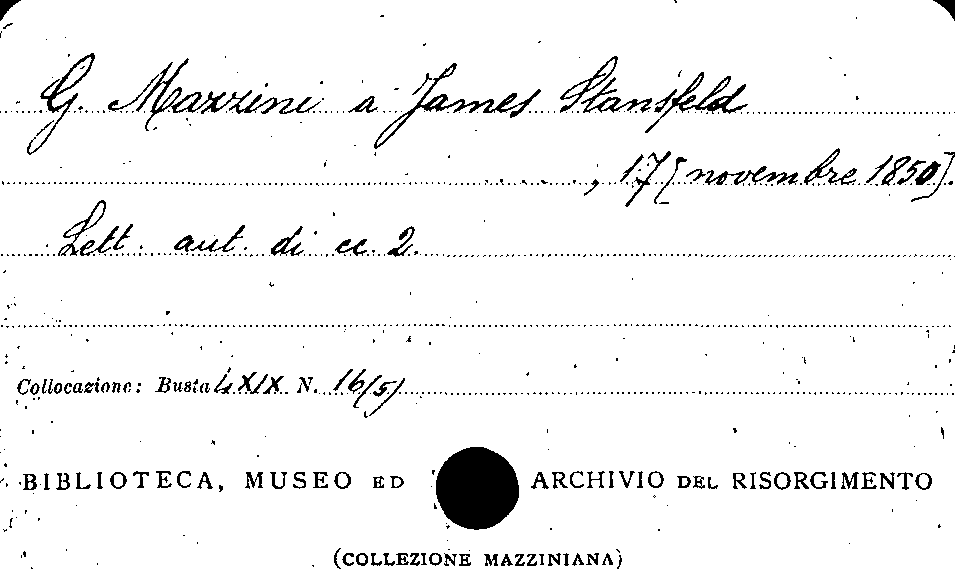 G. Mazzini a James Stansfeld
....., 17 [novembre 1850].
Lett. aut. di cc. 2.
Collocazione: Busta LXIX N. 16/5)
BIBLIOTECA, MUSEO ED ARCHIVIO DEL RISORGIMENTO
(COLLEZIONE MAZZINIANA)